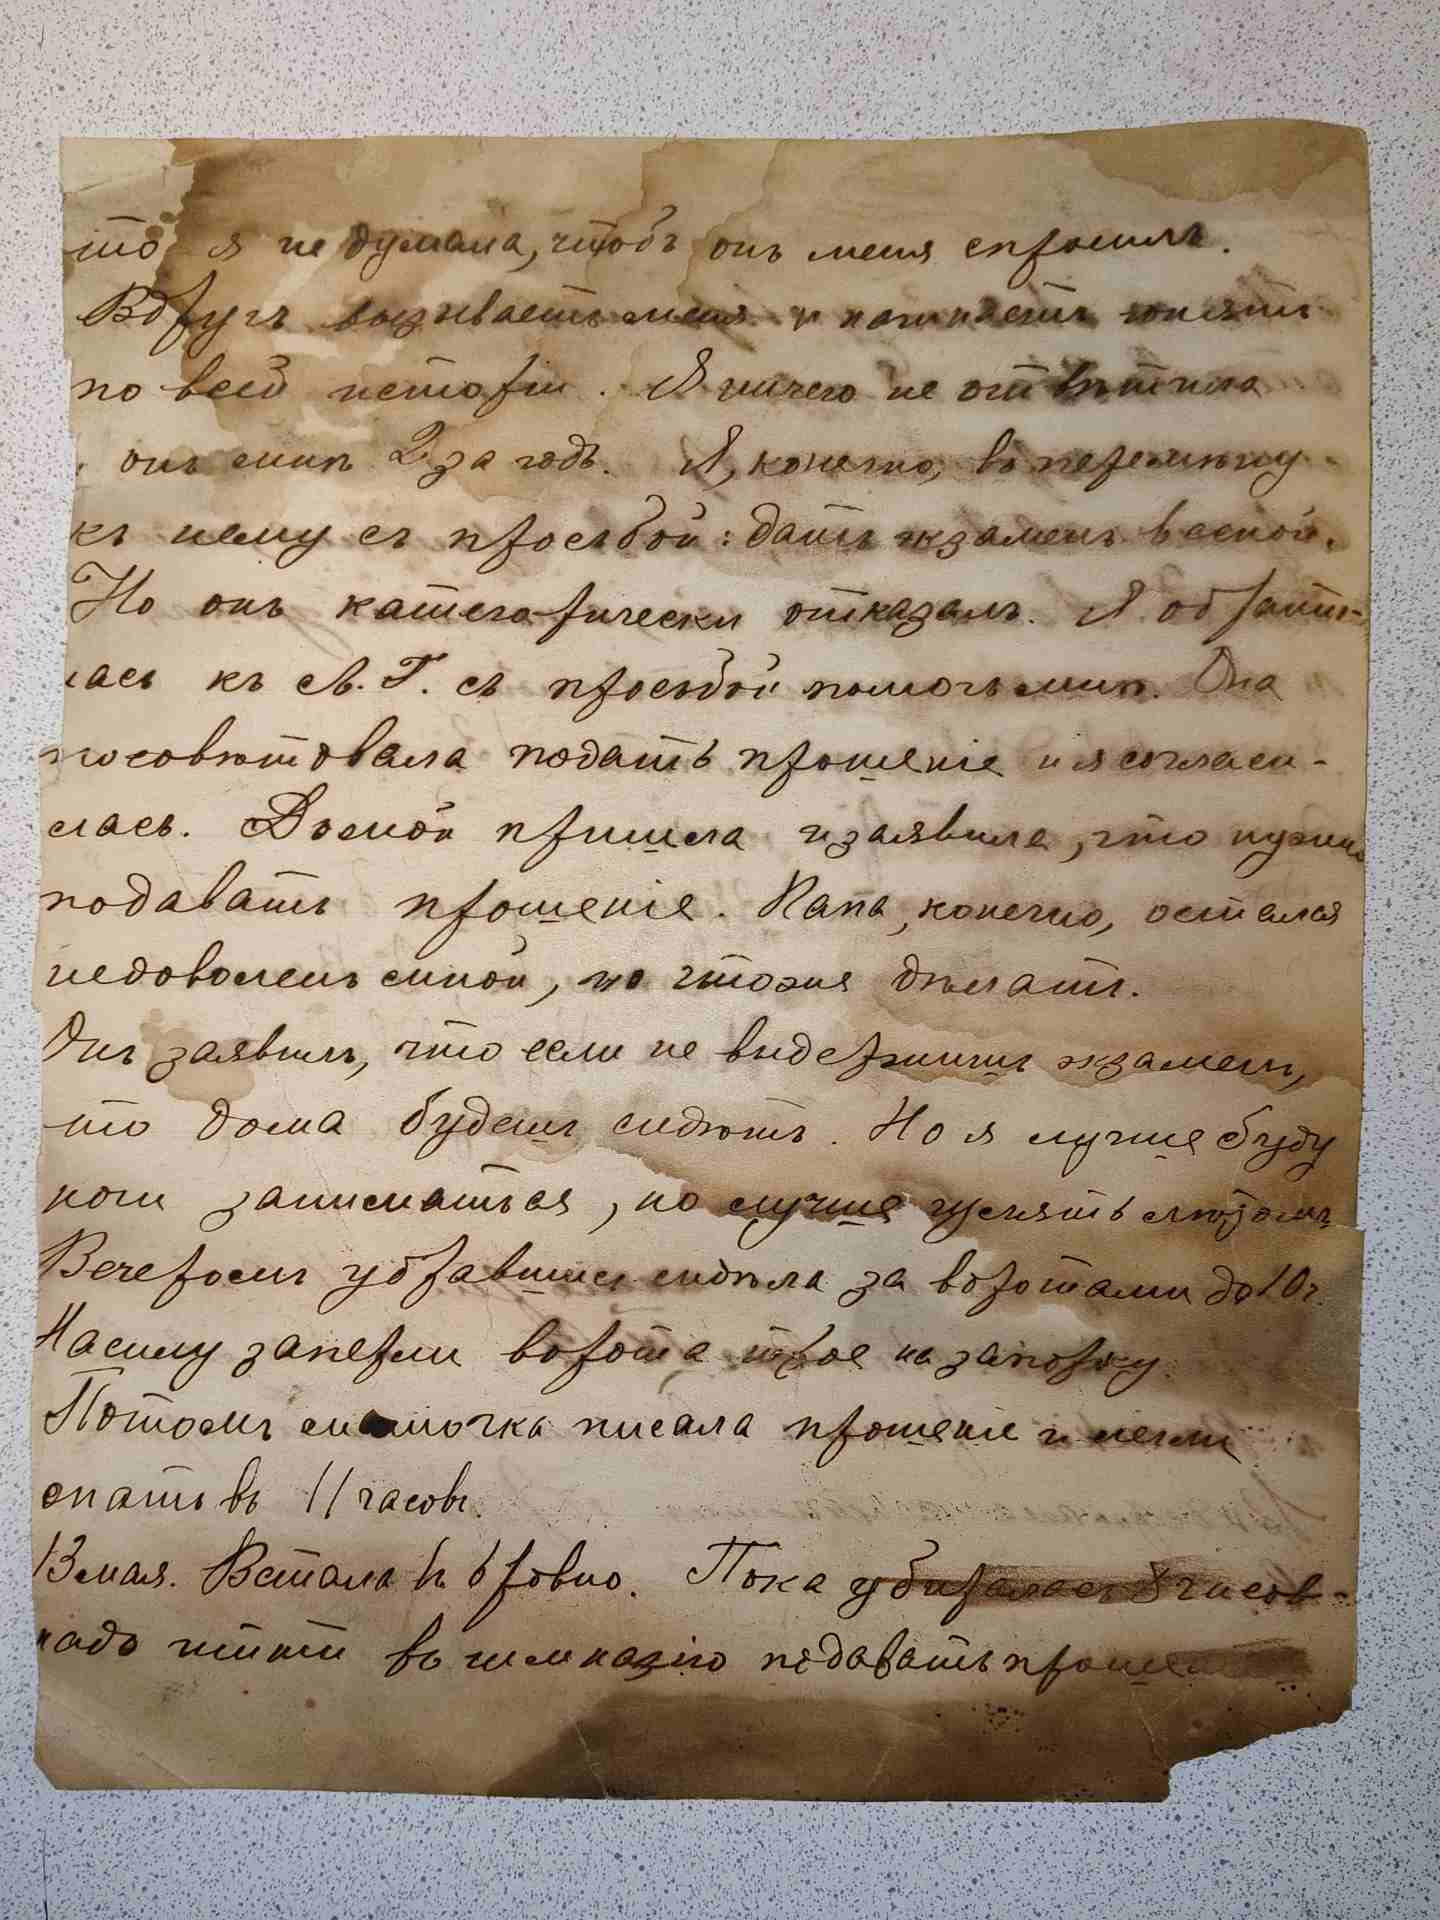 то я не думала, чтобъ онъ меня спросилъ.
Вдругъ вызываетъ меня и начинаетъ гонять
по всей исторіи. Я ничего не отвѣтила
онъ мнѣ 2 за годъ. Я, конечно, въ перемѣну
къ нему съ просьбой: дать экзаменъ весной.
Но онъ категорически отказалъ. Я обрати-
лась къ М. Г. съ просьбой помочь мнѣ. Она
посовѣтовала подать прошеніе и я согласи-
лась. Домой пришла и заявила, что нужно
подавать прошеніе. Папа, конечно, остался
недоволенъ мной, но что же дѣлать.
Онъ заявилъ, что если не выдержишь экзаменъ,
то дома будешь сидѣть. Но я лучше буду
ночи заниматься, но лучше гулять лѣтомъ
Вечеромъ убравшись сидѣла за воротами до 10 ч.
Насилу заперли ворота трое на запорку.
Потомъ мамочка писала прошеніе и легли
спать въ 11 часовъ.
13 мая. Встала въ 6 ровно. Пока убиралась 8 часов-
надо итти въ гимназію подавать